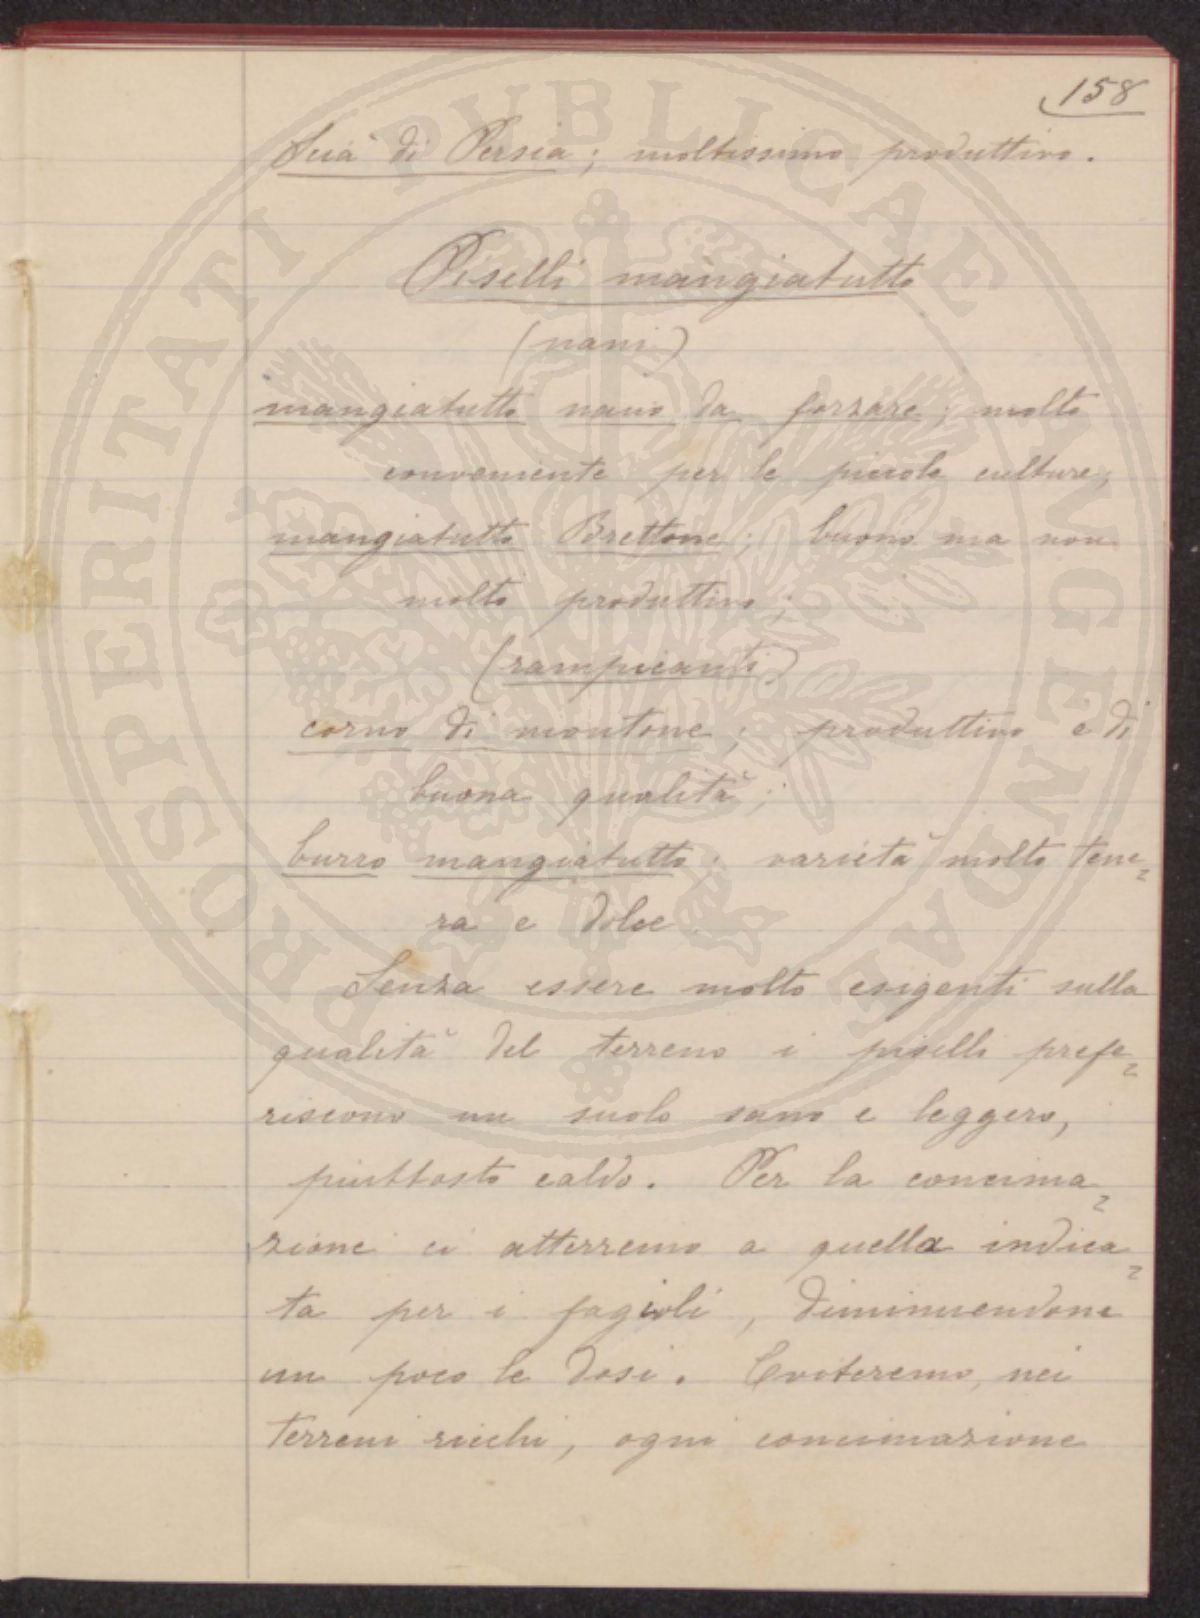 158
di Persia; moltissimo produttivo.
Piselli mangiatutto
(nani)
mangiatutto nano da forzare; molto
conveniente per le piccole culture;
mangiatutto Brettone; buono ma non
molto produttivo;
(rampicanti)
corno di montone; produttivo e di
buona qualità;
burro mangiatutto; varietà molto tene=
ra e dolce
Senza essere molto esigenti sulla
qualità del terreno i piselli prefe=
riscono un suolo sano e leggero,
piuttosto caldo. Per la concima=
zione ci atterremo a quella indica=
ta per i fagioli, diminuendone
un poco le dosi. Eviteremo, nei
terreni ricchi, ogni concimazione
PROSPERITATI PUBLICAE AUGENDAE